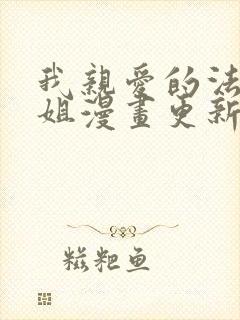 我親愛的法
姐漫畫更新
糍粑鱼